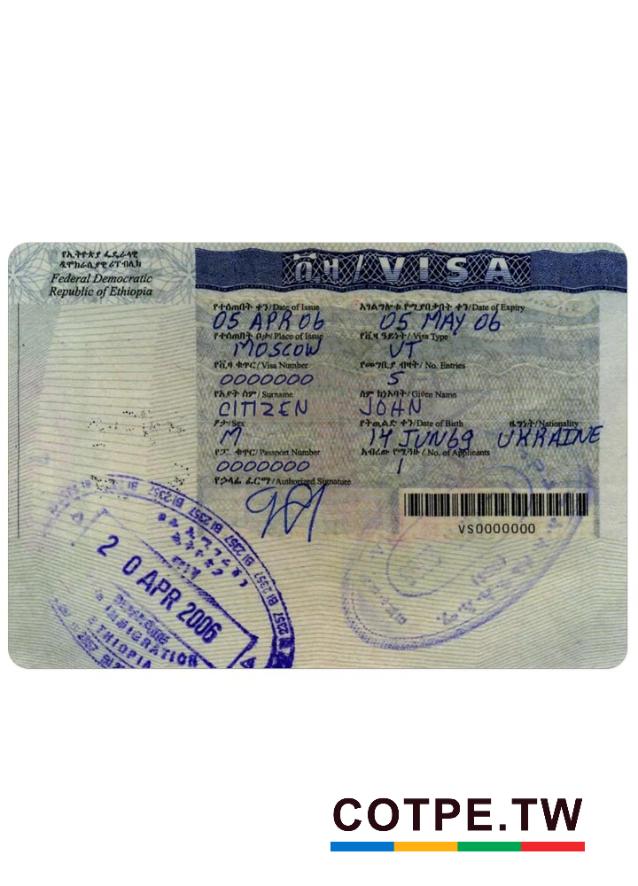 የኢትዮጵያ ፌዴራላዊ
ዲሞክራሲያዊ ሪፐብሊክ
Federal Democratic
Republic of Ethiopia
ቪዛ / VISA
የተሰጠበት ቀን/Date of Issue
05 APR 06
አገልግሎቱ የሚያበቃበት ቀን/Date of Expiry
05 MAY 06
የተሰጠበት ቦታ/Place of Issue
MOSCOW
የቪዛ ዓይነት/Visa Type
VT
የቪዛ ቁጥር/Visa Number
0000000
የመግቢያ ብዛት/No. Entries
S
የአያት ስም/Surname
CITIZEN
ስም ከነአባት/Given Name
JOHN
ፆታ/Sex
M
የትውልድ ቀን/Date of Birth
14 JUN 69
ዜግነት/Nationality
UKRAINE
የፓ. ቁጥር/Passport Number
0000000
አብረው የሚጓዙ/No. of Applicants
1
የኃላፊ ፊርማ/Authorized Signature
VS0000000
BI 2357 BI 2357 BI 2357 BI 2357
20 APR 2006
IMMIGRATION
ETHIOPIA
COTPE.TW